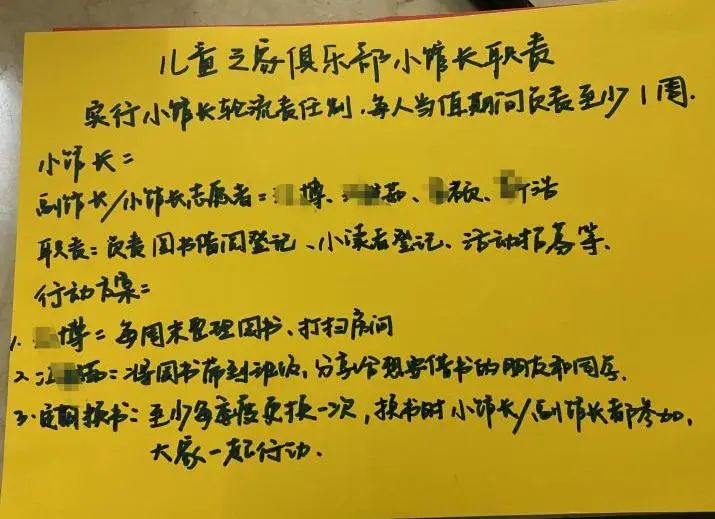 儿童之家俱乐部小馆长职责
实行小馆长轮流责任制，每人当值期间负责至少1周.
小馆长：
副馆长/小馆长志愿者：博、茹、颖、浩
职责：负责图书借阅登记、小读者登记、活动招募等.
行动方案：
1. 博：每周末整理图书、打扫房间
2. 江茹：将图书带到班级，分享给想要借书的朋友和同学.
3. 定期换书：至少每季度更换一次，换书时小馆长/副馆长都参加，
大家一起行动.